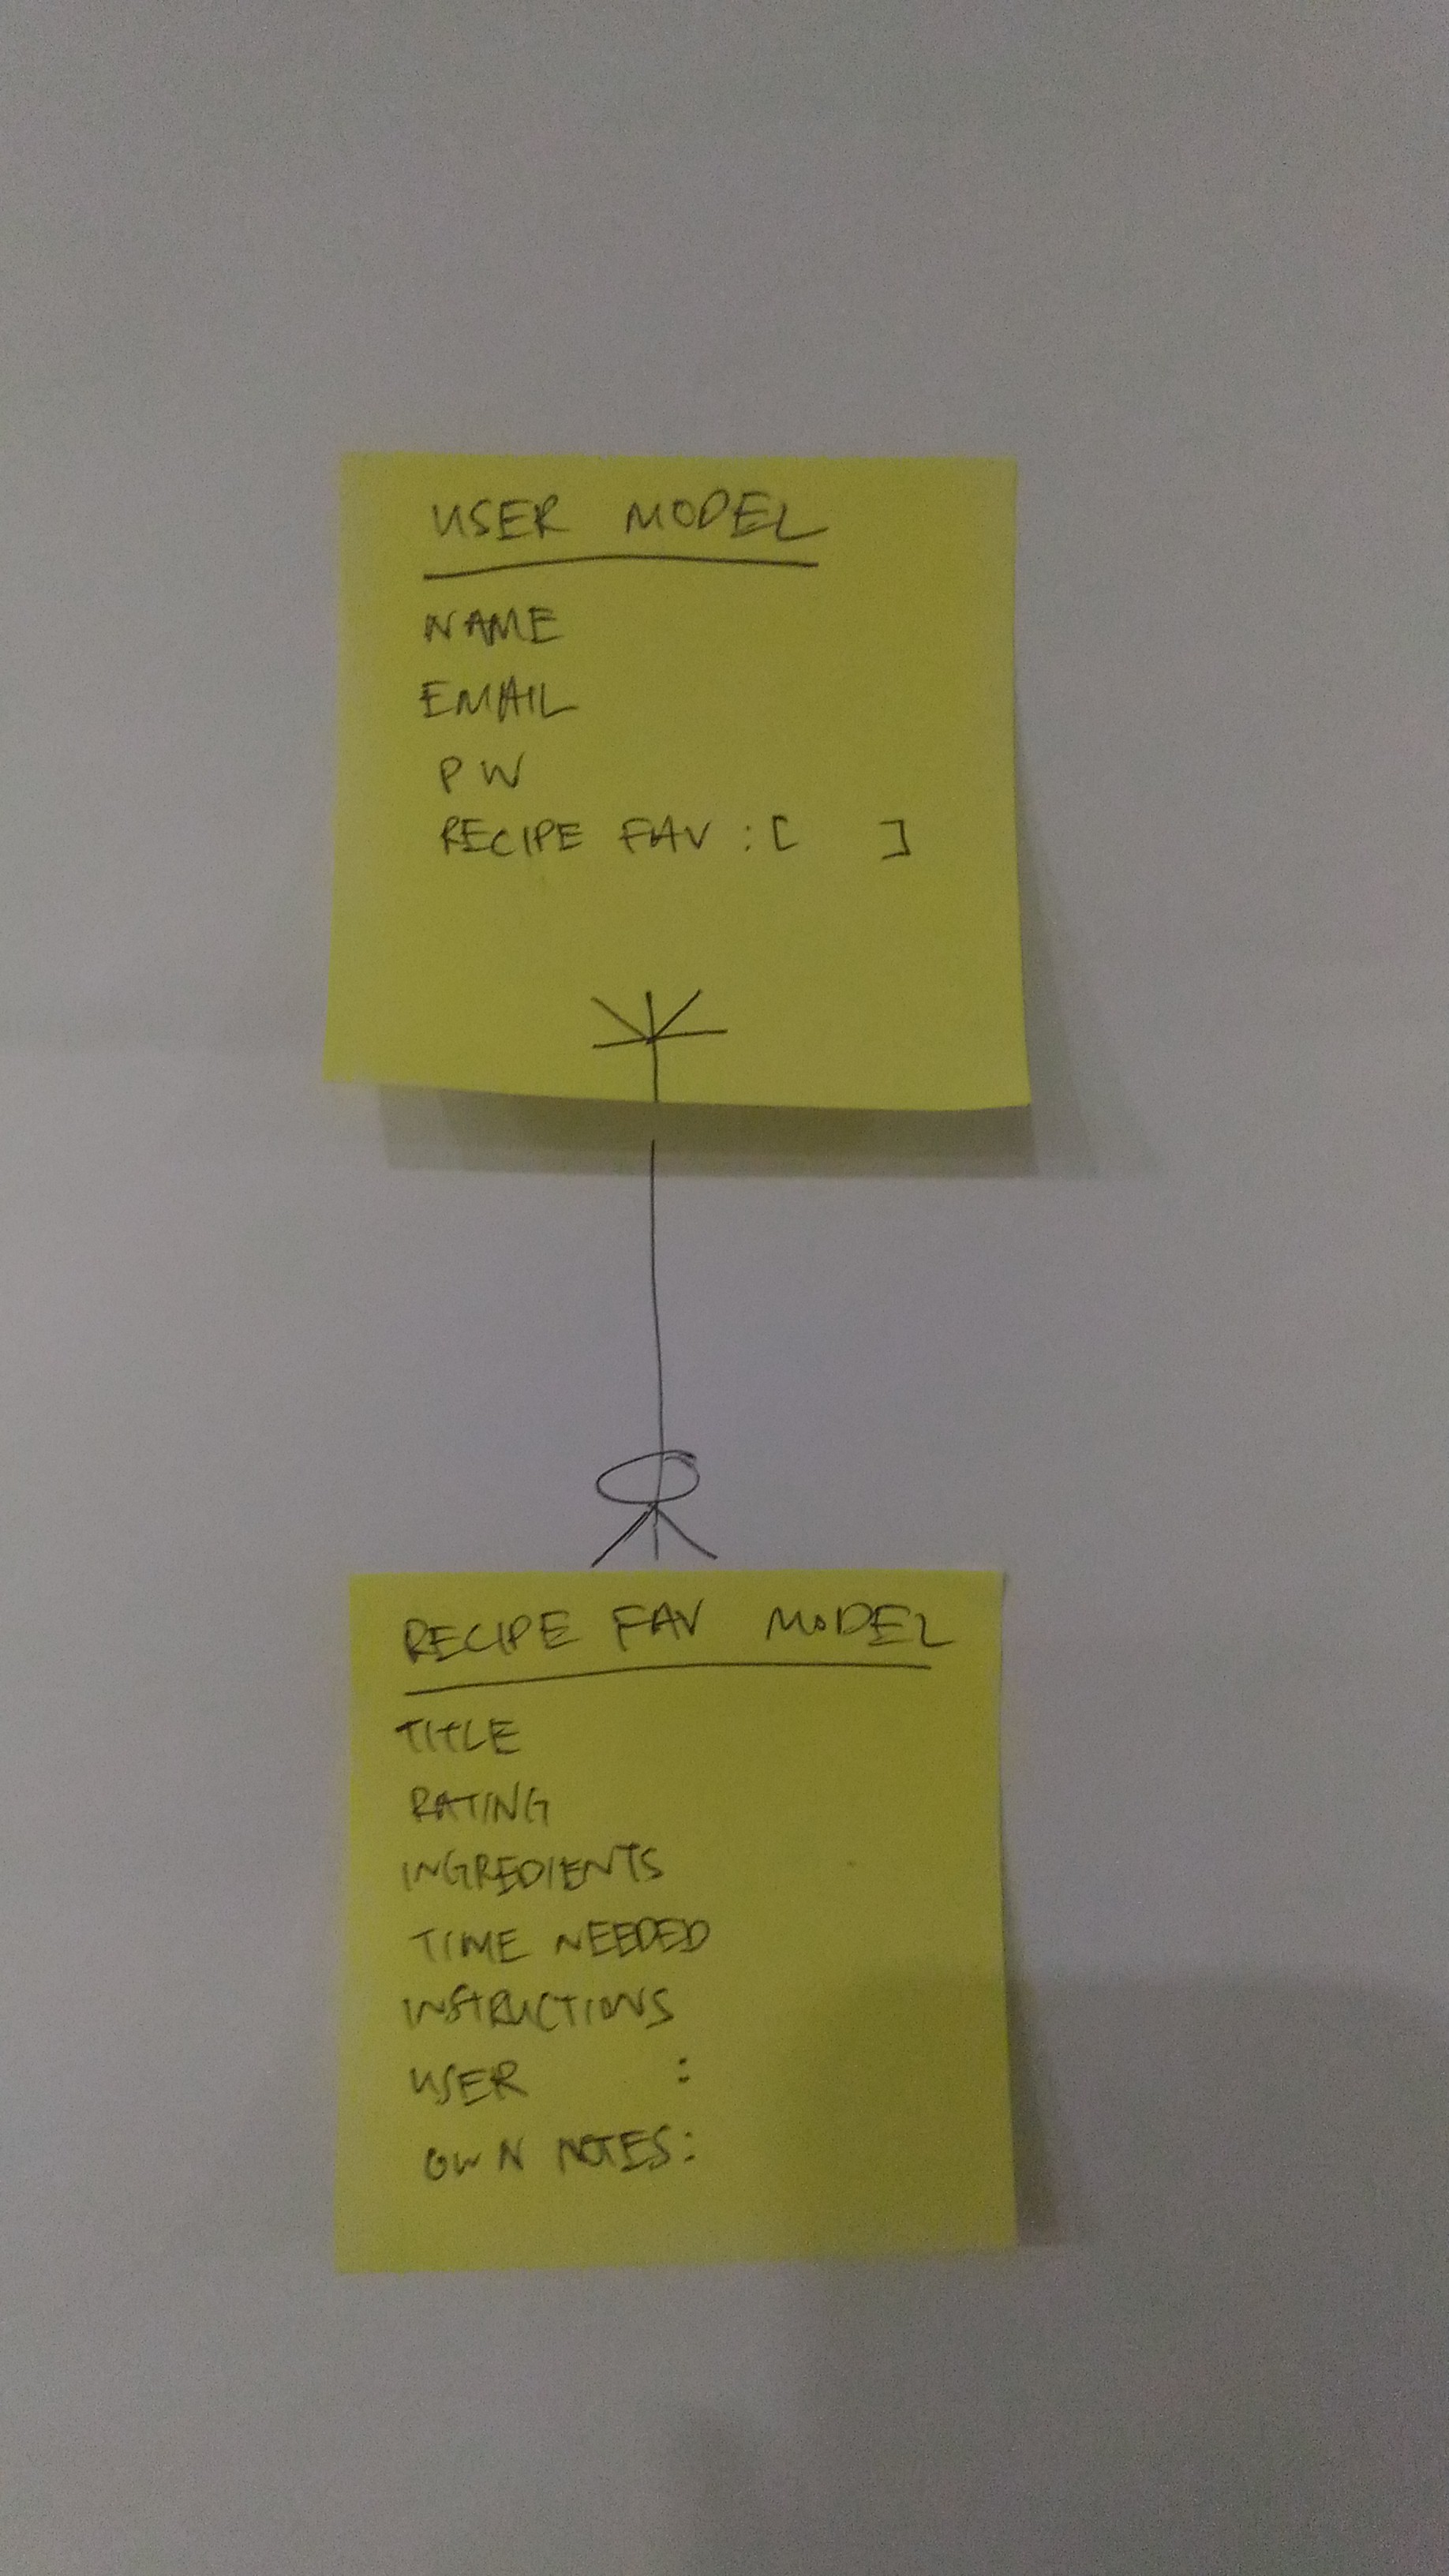 USER MODEL
NAME
EMAIL
PW
RECIPE FAV : [ ]
RECIPE FAV MODEL
TITLE
RATING
INGREDIENTS
TIME NEEDED
INSTRUCTIONS
USER :
OWN NOTES: